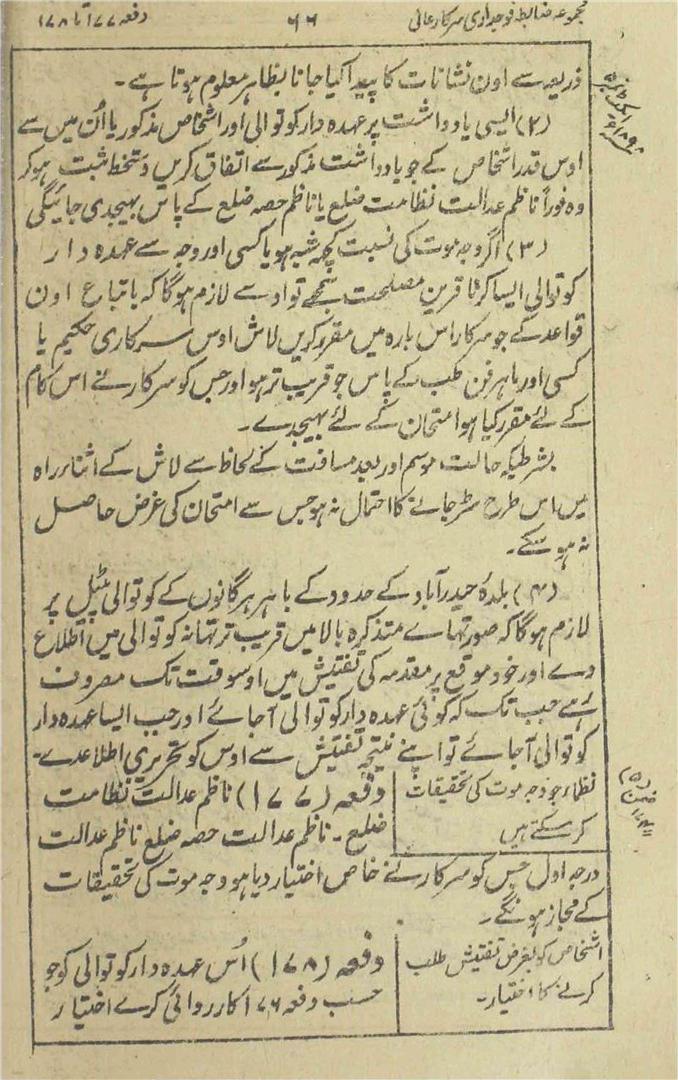 مجموعہ ضابطہ فوجداری سرکار عالی
۶۶
دفعہ ۱۷۷ تا ۱۷۸
ذریعہ سے اون نشانات کا پیدا کیا جانا بظاہر معلوم ہوتا ہے۔
(۲) ایسی یادداشت پر عہدہ دار کوتوالی اور اشخاص مذکور یا اُن میں سے
اوس قدر اشخاص کے جو یادداشت مذکور سے اتفاق کریں دستخط ثبت ہوکر
وہ فوراً ناظم عدالت نظامت ضلع یا ناظم حصہ ضلع کے پاس بھیجدی جائیگی
(۳) اگر وجہ موت کی نسبت کچھ شبہ ہو یا کسی اور وجہ سے عہدہ دار
کوتوالی ایسا کرنا قرین مصلحت سمجھے تو اوسے لازم ہوگا کہ باتباع اون
قواعد کے جو سرکار اس بارہ میں مقرر کریں لاش اوس سرکاری حکیم یا
کسی اور ماہر فن طب کے پاس جو قریب تر ہو اور جس کو سرکار نے اس کام
کے لئے مقرر کیا ہو امتحان کے لئے بھیجدے۔
بشرطیکہ حالت موسم اور بعد مسافت کے لحاظ سے لاش کے اثناء راہ
میں اس طرح سڑ جانے کا احتمال نہ ہو جس سے امتحان کی غرض حاصل
نہ ہو سکے۔
(۴) بلدۂ حیدرآباد کے حدود کے باہر ہر گانوں کے کوتوالی پٹیل پر
لازم ہوگا کہ صورتہاے متذکرہ بالا میں قریب تر تھانہ کوتوالی میں اطلاع
دے اور خود موقع پر مقدمہ کی تفتیش میں اوسوقت تک مصروف
رہے جب تک کہ کوئی عہدہ دار کوتوالی آجائے اور جب ایسا عہدہ دار
کوتوالی آجائے تو اپنے نتیجہ تفتیش سے اوس کو تحریری اطلاع دے۔
نظماء جو وجہ موت کی تحقیقات
کرسکتے ہیں
دفعہ (۱۷۷) ناظم عدالت نظامت
ضلع۔ ناظم عدالت حصہ ضلع ناظم عدالت
درجہ اول جس کو سرکار نے خاص اختیار دیا ہو وجہ موت کی تحقیقات
کے مجاز ہونگے۔
اشخاص کو بغرض تفتیش طلب
کرنے کا اختیار۔
دفعہ (۱۷۸) اُس عہدہ دار کوتوالی کو جو
حسب دفعہ ۱۷۶ کارروائی کرے اختیار
ضمن (۵)